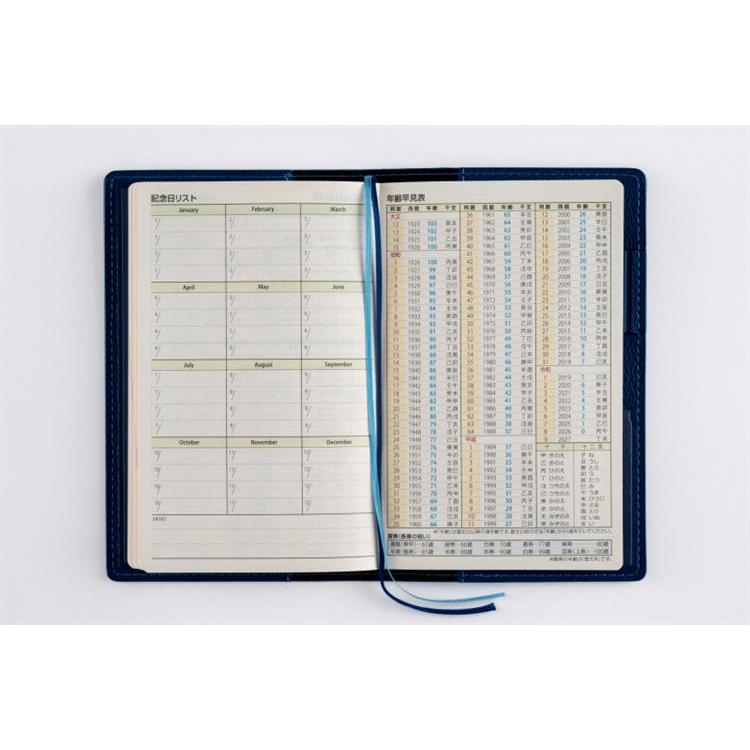 記念日リスト
January February March
1/ 2/ 3/
1/ 2/ 3/
1/ 2/ 3/
1/ 2/ 3/
April May June
4/ 5/ 6/
4/ 5/ 6/
4/ 5/ 6/
4/ 5/ 6/
July August September
7/ 8/ 9/
7/ 8/ 9/
7/ 8/ 9/
7/ 8/ 9/
October November December
10/ 11/ 12/
10/ 11/ 12/
10/ 11/ 12/
10/ 11/ 12/
MEMO
年齢早見表
邦暦 西暦 年齢 干支
大正
12 1923 103 癸亥
13 1924 102 甲子
14 1925 101 乙丑
15 1926 100 丙寅
昭和
1 1926 100 丙寅
2 1927 99 丁卯
3 1928 98 戊辰
4 1929 97 己巳
5 1930 96 庚午
6 1931 95 辛未
7 1932 94 壬申
8 1933 93 癸酉
9 1934 92 甲戌
10 1935 91 乙亥
11 1936 90 丙子
12 1937 89 丁丑
13 1938 88 戊寅
14 1939 87 己卯
15 1940 86 庚辰
16 1941 85 辛巳
17 1942 84 壬午
18 1943 83 癸未
19 1944 82 甲申
20 1945 81 乙酉
21 1946 80 丙戌
22 1947 79 丁亥
23 1948 78 戊子
24 1949 77 己丑
25 1950 76 庚寅
26 1951 75 辛卯
27 1952 74 壬辰
28 1953 73 癸巳
29 1954 72 甲午
30 1955 71 乙未
31 1956 70 丙申
32 1957 69 丁酉
33 1958 68 戊戌
34 1959 67 己亥
35 1960 66 庚子
邦暦 西暦 年齢 干支
36 1961 65 辛丑
37 1962 64 壬寅
38 1963 63 癸卯
39 1964 62 甲辰
40 1965 61 乙巳
41 1966 60 丙午
42 1967 59 丁未
43 1968 58 戊申
44 1969 57 己酉
45 1970 56 庚戌
46 1971 55 辛亥
47 1972 54 壬子
48 1973 53 癸丑
49 1974 52 甲寅
50 1975 51 乙卯
51 1976 50 丙辰
52 1977 49 丁巳
53 1978 48 戊午
54 1979 47 己未
55 1980 46 庚申
56 1981 45 辛酉
57 1982 44 壬戌
58 1983 43 癸亥
59 1984 42 甲子
60 1985 41 乙丑
61 1986 40 丙寅
62 1987 39 丁卯
63 1988 38 戊辰
64 1989 37 己巳
平成
1 1989 37 己巳
2 1990 36 庚午
3 1991 35 辛未
4 1992 34 壬申
5 1993 33 癸酉
6 1994 32 甲戌
7 1995 31 乙亥
8 1996 30 丙子
9 1997 29 丁丑
10 1998 28 戊寅
11 1999 27 己卯
邦暦 西暦 年齢 干支
12 2000 26 庚辰
13 2001 25 辛巳
14 2002 24 壬午
15 2003 23 癸未
16 2004 22 甲申
17 2005 21 乙酉
18 2006 20 丙戌
19 2007 19 丁亥
20 2008 18 戊子
21 2009 17 己丑
22 2010 16 庚寅
23 2011 15 辛卯
24 2012 14 壬辰
25 2013 13 癸巳
26 2014 12 甲午
27 2015 11 乙未
28 2016 10 丙申
29 2017 9 丁酉
30 2018 8 戊戌
31 2019 7 己亥
令和
1 2019 7 己亥
2 2020 6 庚子
3 2021 5 辛丑
4 2022 4 壬寅
5 2023 3 癸卯
6 2024 2 甲辰
7 2025 1 乙巳
8 2026 0 丙午
9 2027 丁未
十干 十二支
甲 きのえ 子 ね
乙 きのと 丑 うし
丙 ひのえ 寅 とら
丁 ひのと 卯 う
戊 つちのえ 辰 たつ
己 つちのと 巳 み
庚 かのえ 午 うま
辛 かのと 未 ひつじ
壬 みずのえ 申 さる
癸 みずのと 酉 とり
戌 いぬ
亥 い
賀寿(長寿の祝い)
還暦(華甲)・61歳 緑寿・66歳 古稀・70歳 喜寿・77歳 傘寿・80歳
半寿(盤寿)・81歳 米寿・88歳 卒寿・90歳 白寿・99歳 百寿(上寿)・100歳